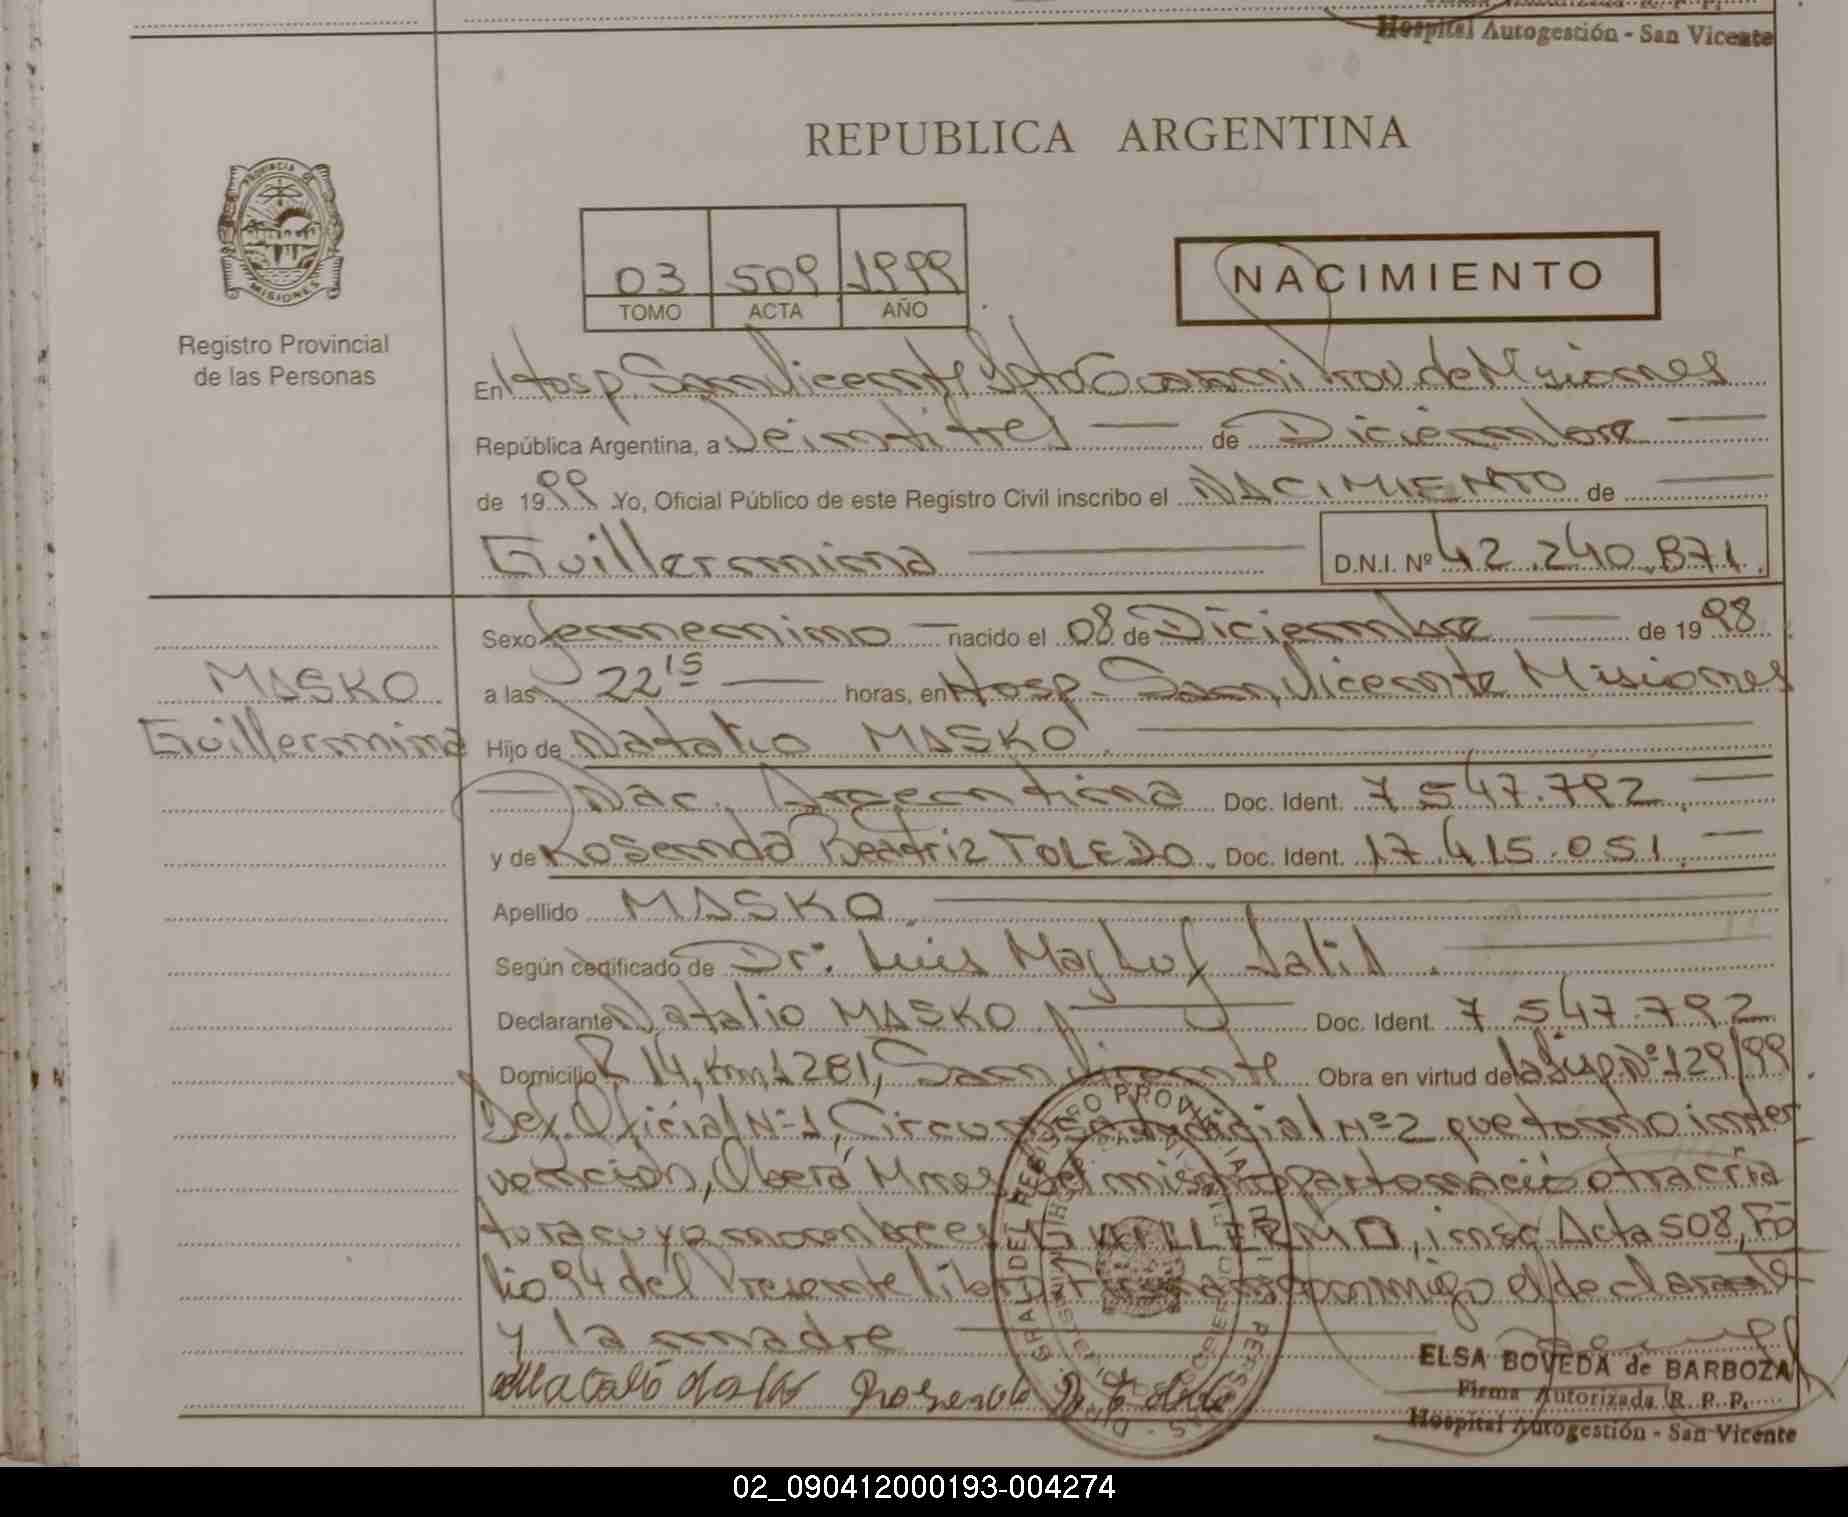 Hospital Autogestión - San Vicente
REPUBLICA ARGENTINA
PROVINCIA DE MISIONES
Registro Provincial
de las Personas
03 509 1999
TOMO ACTA AÑO
NACIMIENTO
En Hosp. San Vicente, Dpto Guaraní Prov. de Misiones
República Argentina, a Veintitres de Diciembre
de 1999 Yo, Oficial Público de este Registro Civil inscribo el NACIMIENTO de
Guillermina D.N.I. Nº 42.240.871.
Sexo femenino nacido el 08 de Diciembre de 1998
MASKO
Guillermina
a las 22 15 horas, en Hosp. San Vicente Misiones
Hijo de Natalio MASKO.
Nac. Argentina Doc. Ident. 7.547.792.
y de Rosenda Beatriz TOLEDO. Doc. Ident. 17.415.051.
Apellido MASKO.
Según certificado de Dr. Luis
Declarante Natalio MASKO Doc. Ident. 7.547.792
Domicilio R 14, Km 1281, San Vicente Obra en virtud de la Disp. Nº 129/99.
Def. Oficial Nº 1, Circunsc. Judicial Nº 2 que tomo inter
vención, Oberá Mnes. Del mismo parto nació otra cria
tura cuyo nombre es GUILLERMO, insc. Acta 508, Fo
lio 94 del Presente libro. Firman conmigo el declarante
y la madre
ELSA BOVEDA de BARBOZA
Firma Autorizada R. P. P.
Hospital Autogestión - San Vicente
02_090412000193-004274